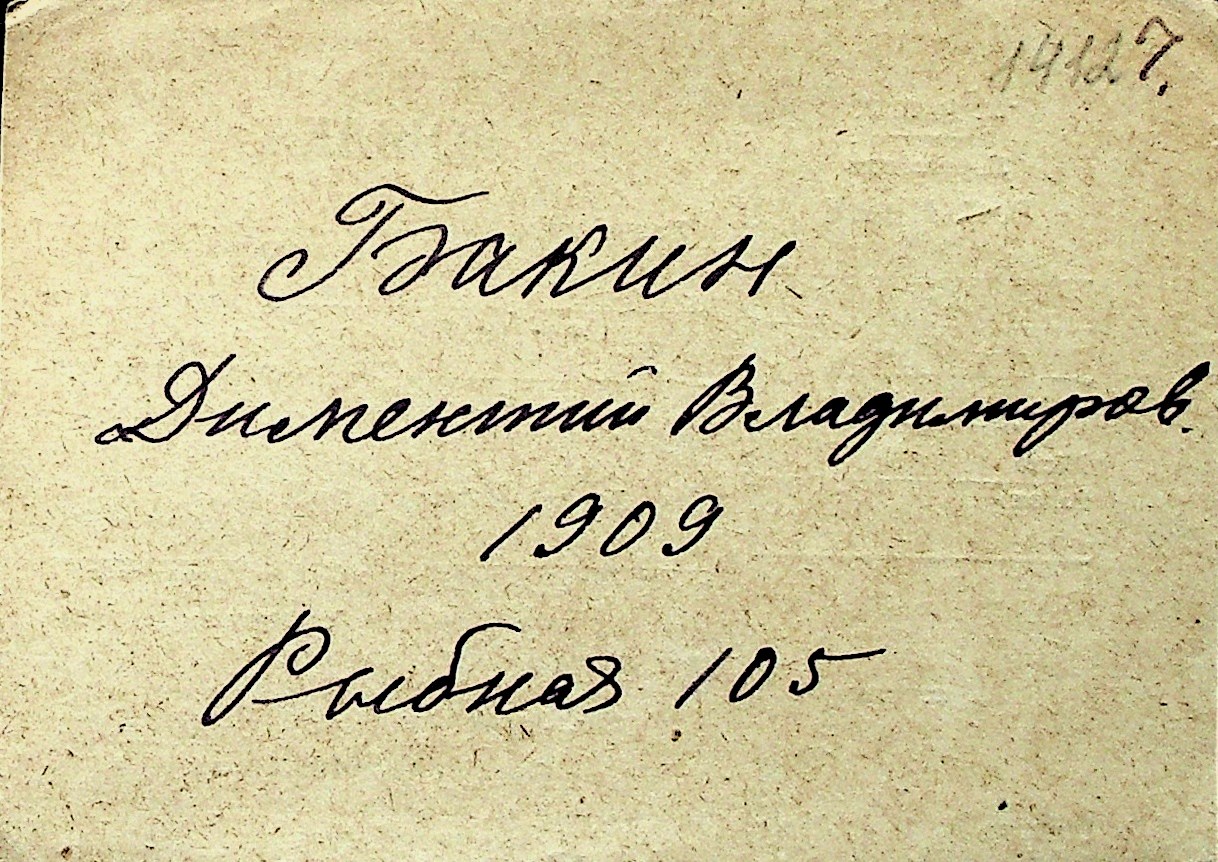 7.
Бакин
Диментий Владимиров.
1909
Рыбная 105